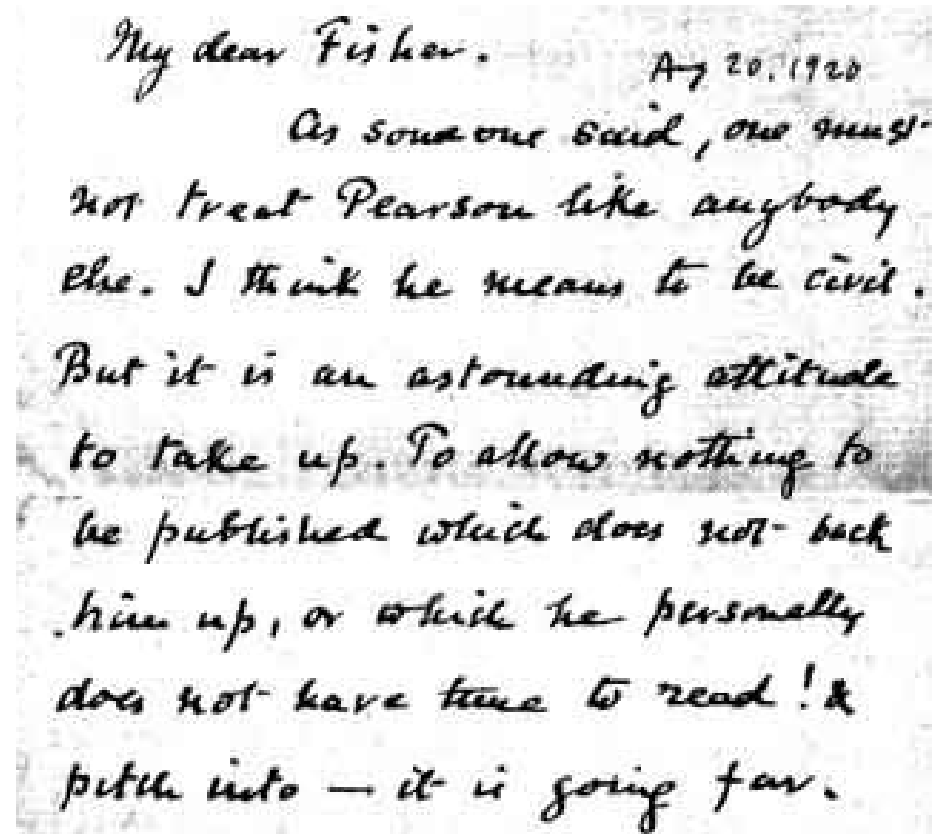 My dear Fisher.
Aug 20. 1920
As someone said, one must
not treat Pearson like anybody
else. I think he means to be civil.
But it is an astounding attitude
to take up. To allow nothing to
be published which does not back
him up, or which he personally
does not have time to read! &
pitch into — it is going far.